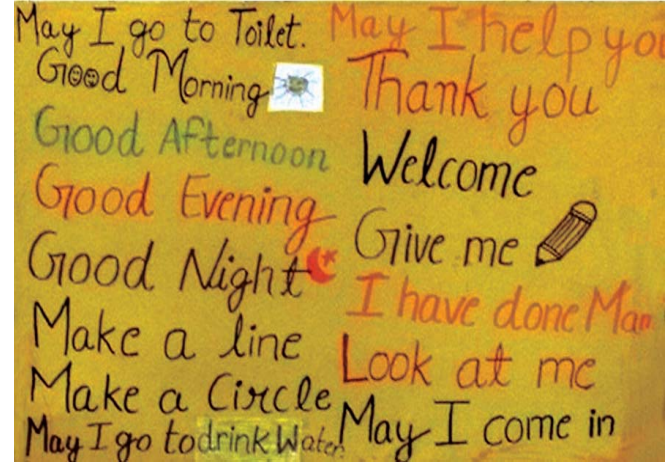 May I go to Toilet.
Good Morning
Good Afternoon
Good Evening
Good Night
Make a line
Make a Circle
May I go to drink Water.
May I help you
Thank you
Welcome
Give me
I have done Mam
Look at me
May I come in